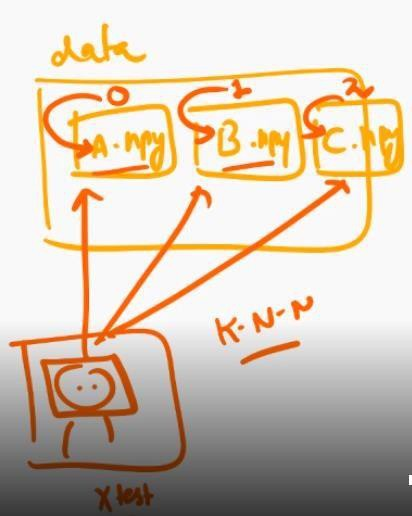 data
0 1 2
A.npy B.npy C.npy
K-N-N
X test